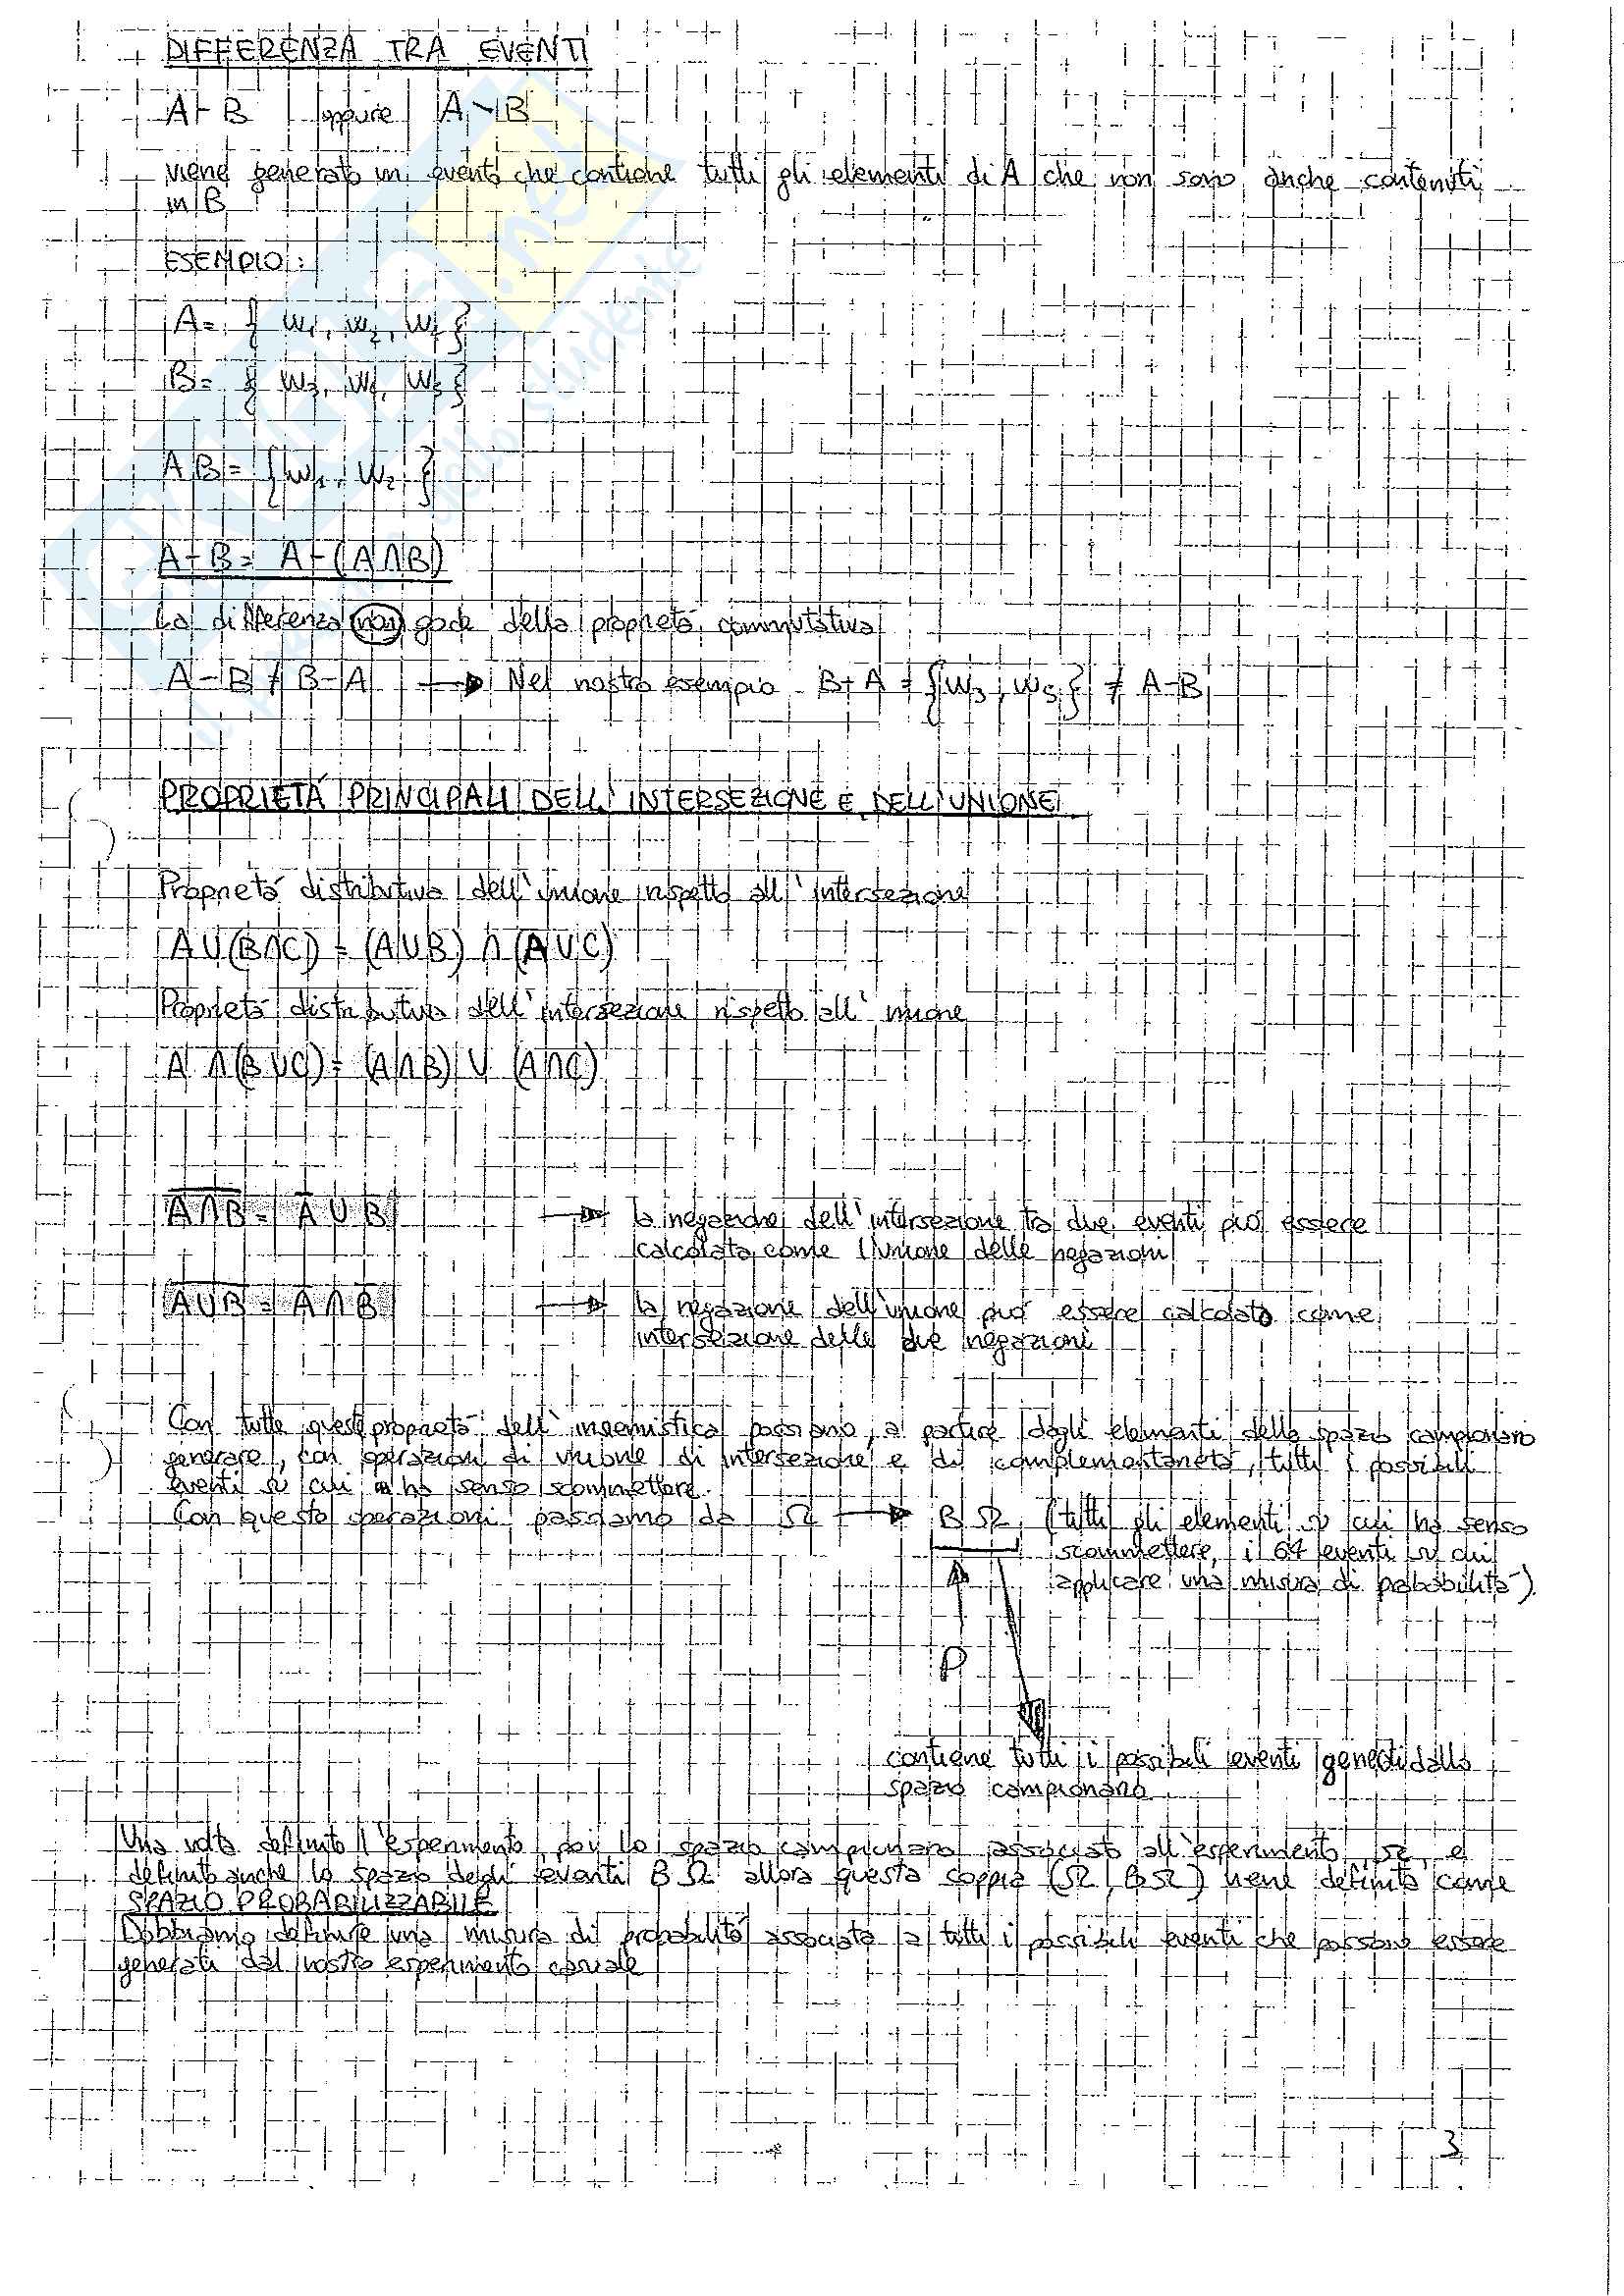 DIFFERENZA TRA EVENTI
A - B oppure A \ B
viene generato un evento che contiene tutti gli elementi di A che non sono anche contenuti
in B
ESEMPIO:
A = { W1, W2, W4 }
B = { W3, W4, W5 }
A B = { W1, W2 }
A - B = A - (A ∩ B)
La differenza non gode della proprietà commutativa
A - B ≠ B - A → Nel nostro esempio B - A = { W3, W5 } ≠ A - B
PROPRIETÀ PRINCIPALI DELL'INTERSEZIONE E DELL'UNIONE
Proprietà distributiva dell'unione rispetto all'intersezione
A ∪ (B ∩ C) = (A ∪ B) ∩ (A ∪ C)
Proprietà distributiva dell'intersezione rispetto all'unione
A ∩ (B ∪ C) = (A ∩ B) ∪ (A ∩ C)
A ∩ B = A ∪ B → la negazione dell'intersezione tra due eventi può essere
calcolata come l'unione delle negazioni
A ∪ B = A ∩ B → la negazione dell'unione può essere calcolato come
intersezione delle due negazioni
Con tutte queste proprietà dell'insiemistica possiamo, a partire dagli elementi dello spazio campionario
generare, con operazioni di unione, di intersezione e di complementarietà, tutti i possibili
eventi su cui ha senso scommettere.
Con queste operazioni passiamo da Ω → B Ω (tutti gli elementi su cui ha senso
scommettere, i 64 eventi su cui
applicare una misura di probabilità)
P
contiene tutti i possibili eventi generati dallo
spazio campionario
Una volta definito l'esperimento, poi lo spazio campionario associato all'esperimento, Ω, e
definito anche lo spazio degli eventi B Ω allora questa coppia (Ω, B Ω) viene definita come
SPAZIO PROBABILIZZABILE
Dobbiamo definire una misura di probabilità associata a tutti i possibili eventi che possono essere
generati dal nostro esperimento casuale
3